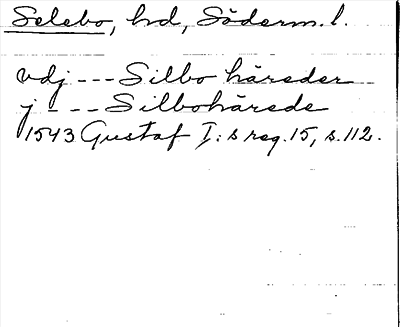 Selebo, hd, Söderm. l.
vdj --- Silbo häreder
j --- Silbohärede
1543 Gustaf I:s reg. 15, s. 112.